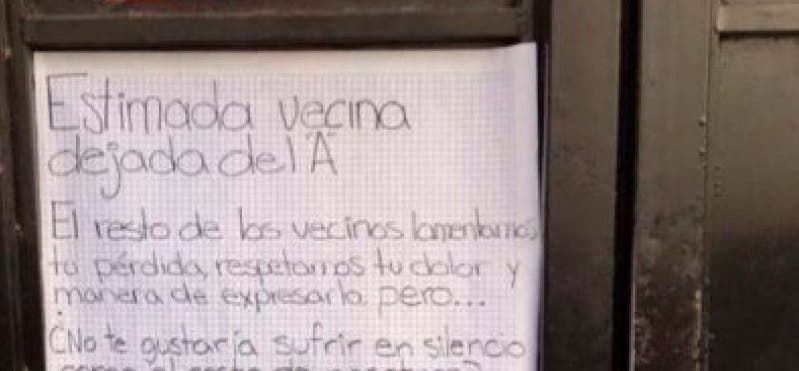 Estimada vecina
dejada del "A"
El resto de los vecinos lamentamos
tu pérdida, respetamos tu dolor y
manera de expresarla pero...
¿No te gustaría sufrir en silencio
como el resto de nosotros?